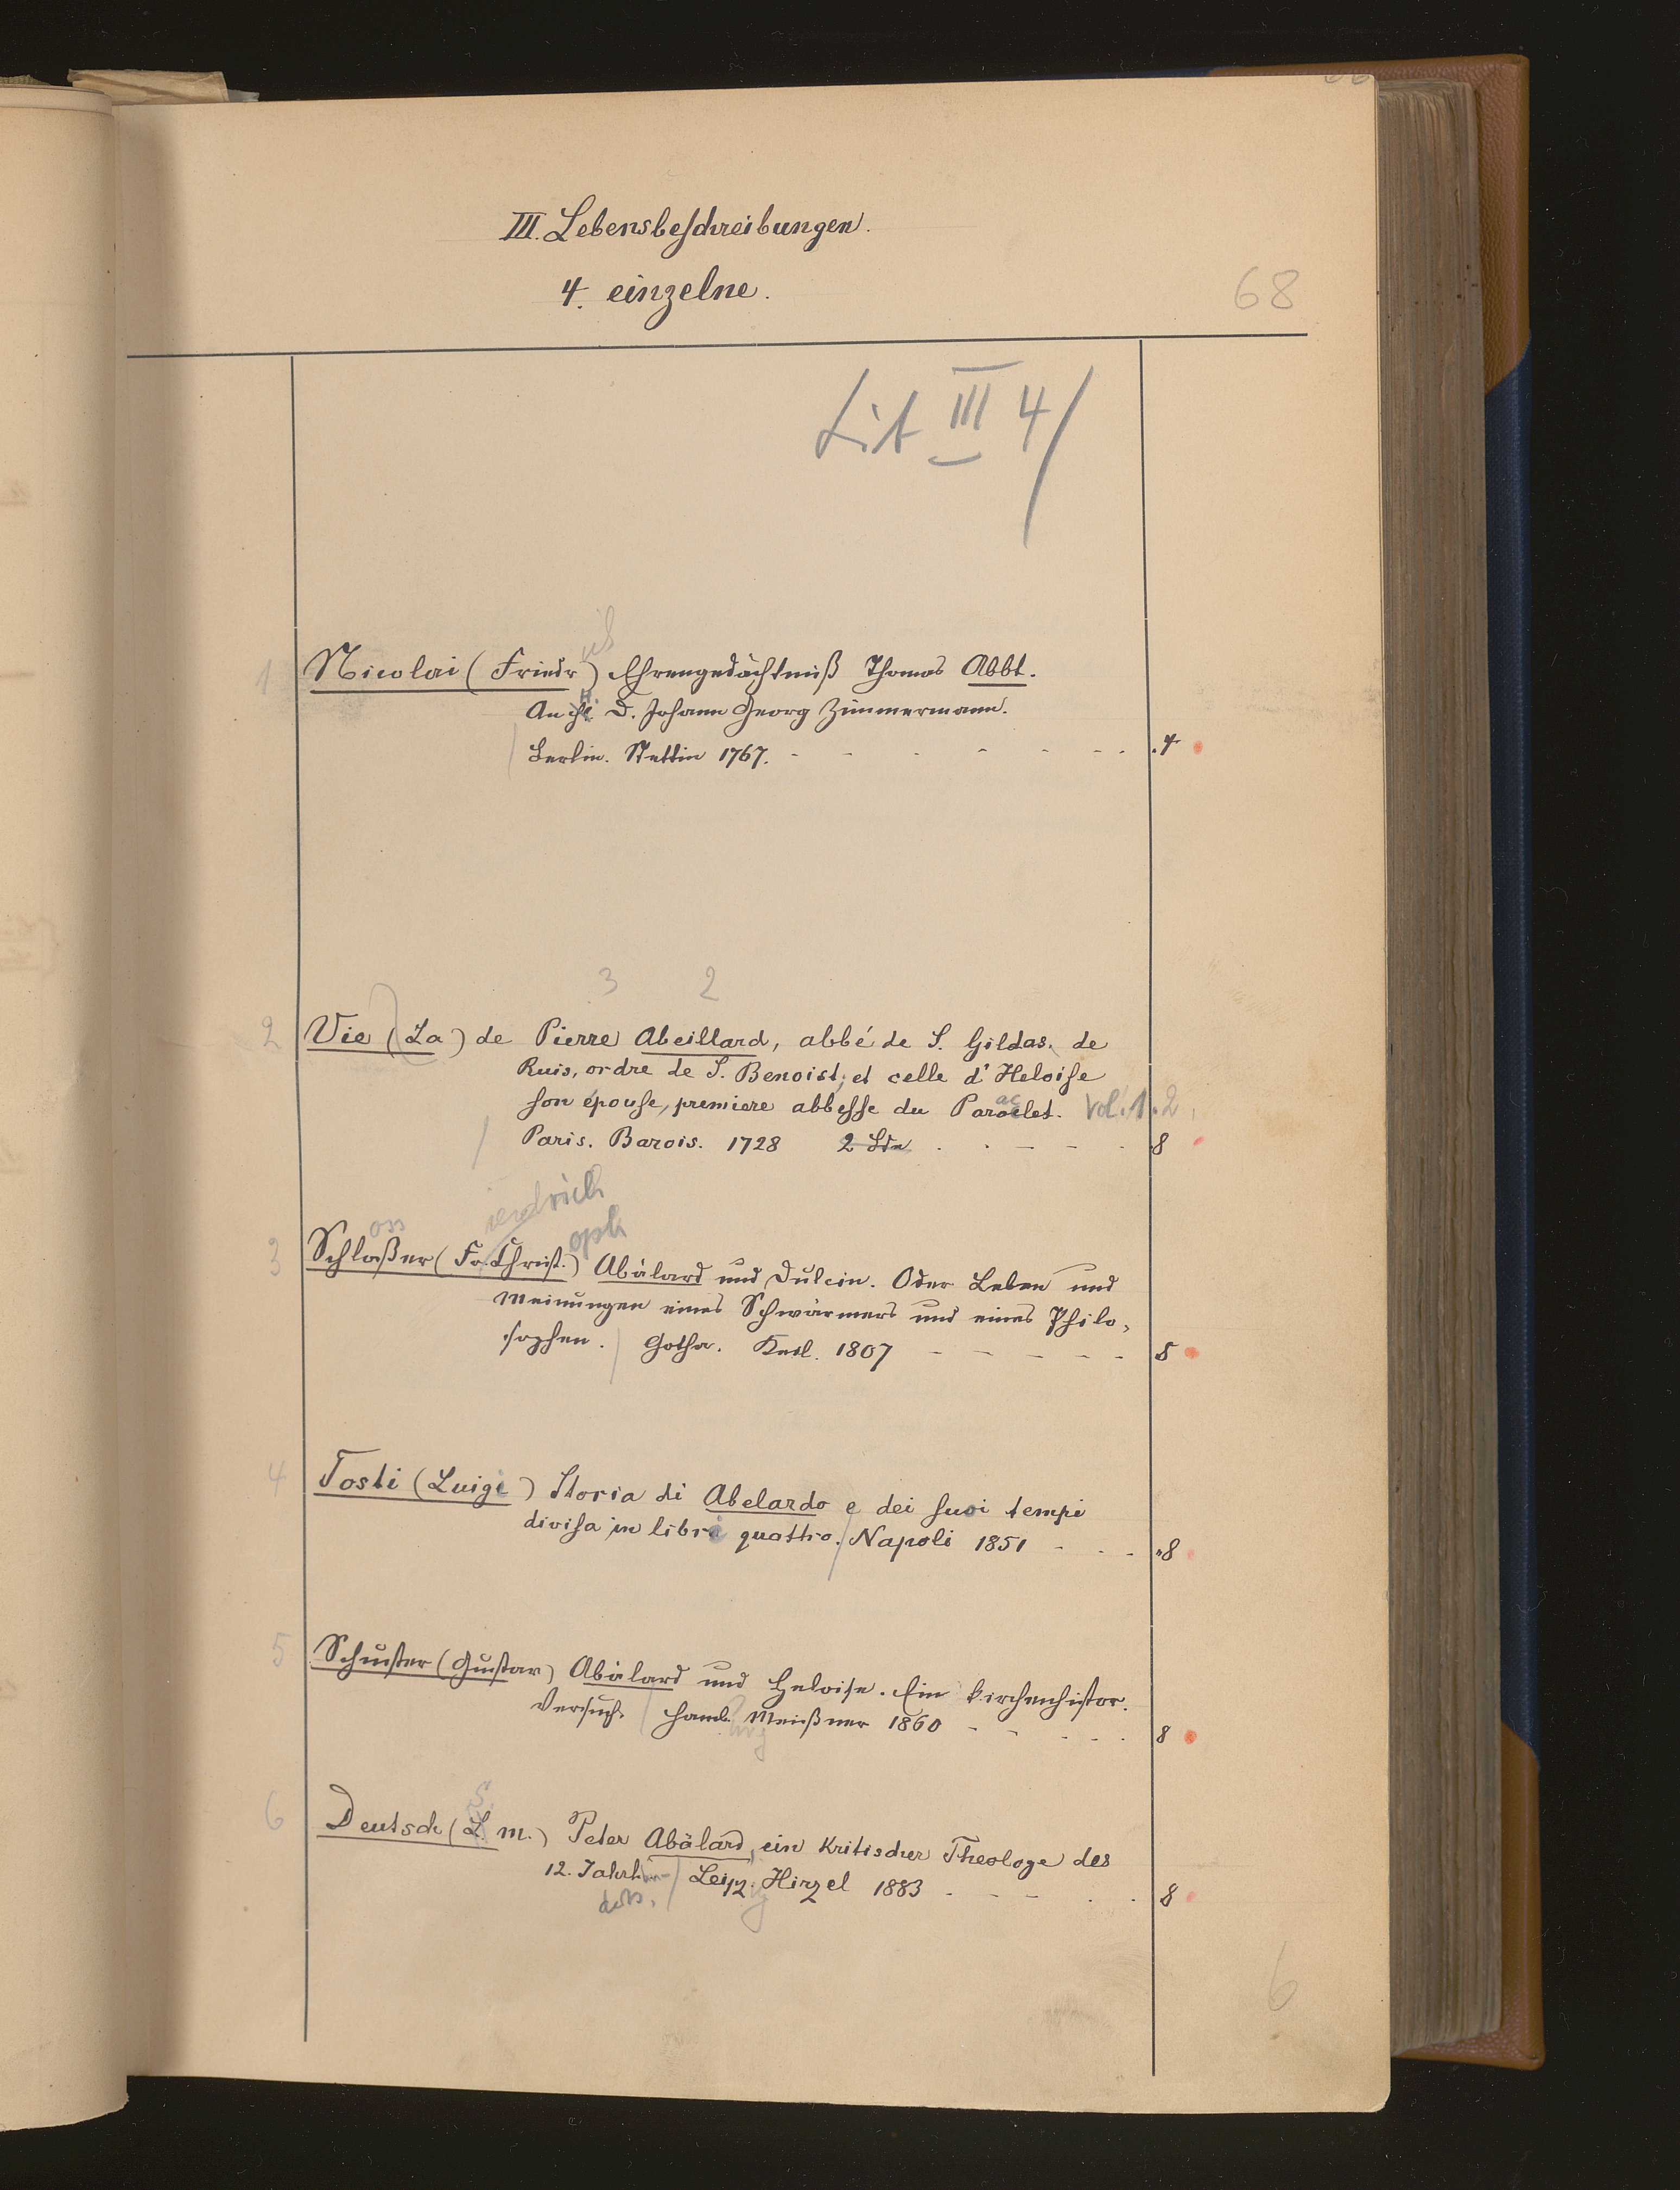 III. Lebensbeschreibungen.
4. einzelne.
68
Lit III 4/
1 Nicolai (Friedr ich) Ehrengedächtniß Thomas Abbt.
An H D. Johann Georg Zimmermann.
Berlin. Stettin 1767. - - - - - - - .4
3 2
2 Vie (La) de Pierre Abeillard, abbé de S. Gildas. de
Ruis, ordre de S. Benoist; et celle d'Heloise
son épouse, premiere abbesse du Paraclet. Vol. 1.2,
Paris. Barois. 1728 2 Bde . . - - - 8
oss iedrich oph
3 Schloßer (Fr. Christ.) Abälard und Dulcin. Oder Leben und
Meinungen eines Schwärmers und eines Philo-
sophen. / Gotha. 1807 - - - - - 8
4 Tosti (Luigi) Storia di Abelardo e dei suoi tempi
divisa in libri quattro. / Napoli 1851 - - - 8
5 Schuster (Gustav) Abälard und Heloise. Ein kirchenhistor.
Versuch. / Hamb. Meißner 1860 - - - - - 8
burg
S.
6 Deutsch (L. M.) Peter Abälard, ein kritischer Theologe des
12. Jahrhun- / Leipz. Hirzel 1883 - - - - - 8
derts. ig
6